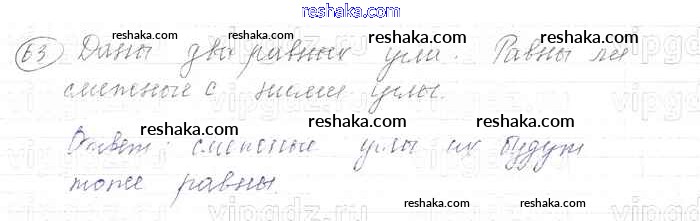 reshaka.com
63 Даны два равных угла. Равны ли
reshaka.com reshaka.com
смежные с ними углы.
reshaka.com reshaka.com
Ответ: смежные углы их будут
reshaka.com reshaka.com
тоже равны.
reshaka.com